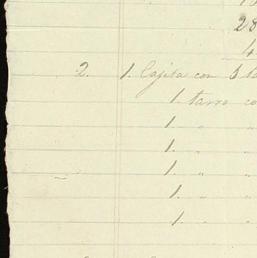 28
4
2. 1. Cajita con 3
1. tarro
1. " "
1. " "
1. " "
1. " "
1. " "